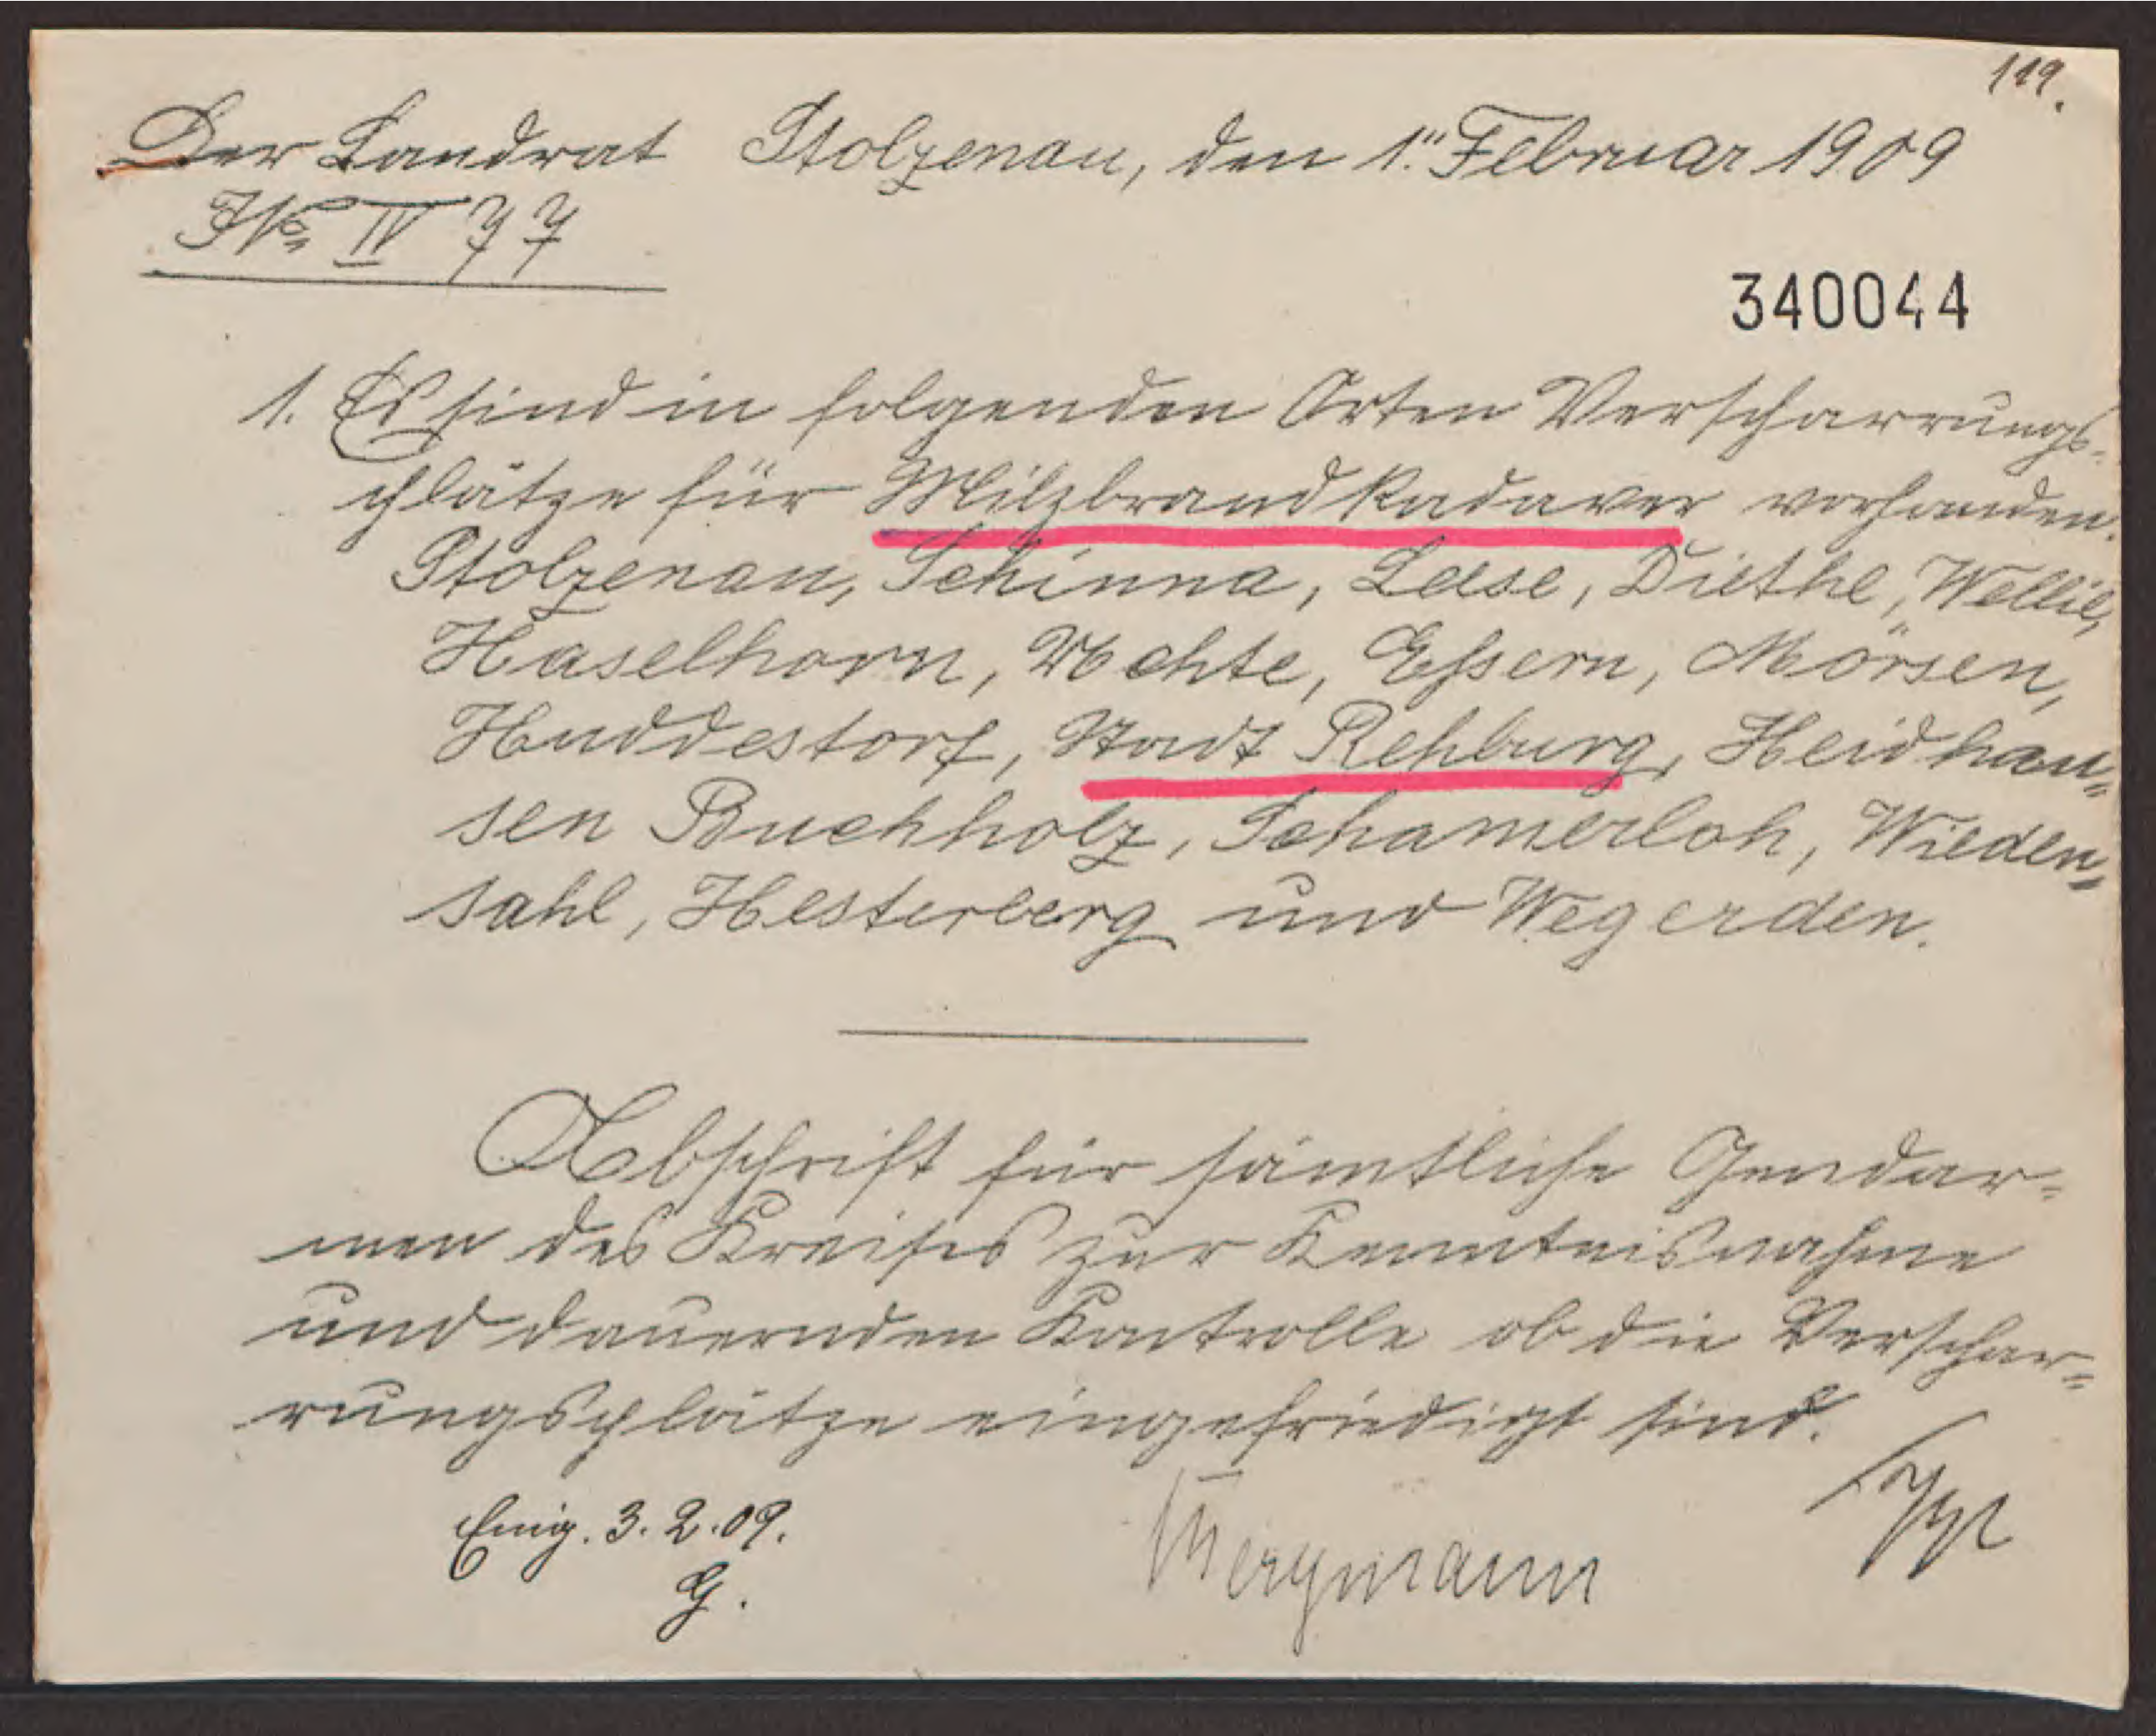 119.
Der Landrat Stolzenau, den 1. Februar 1909
JNo IV 77
340044
1. Es sind in folgenden Orten Verscharrungs-
plätze für Milzbrandkadaver vorhanden.
Stolzenau, Schinna, Leese, Diethe, Wellie,
Haselhorn, Uchte, Essern, Mörsen,
Huddestorf, Stadt Rehburg, Heidhau=
sen Buchholz, Schamerloh, Wieden=
sahl, Hesterberg und Wegerden.
Abschrift für sämtliche Gendar=
men des Kreises zur Kenntnisnahme
und dauernden Kontrolle ob die Verschar=
rungsplätze eingefriedigt sind.
Eing. 3.2.09.
G.
Bergmann